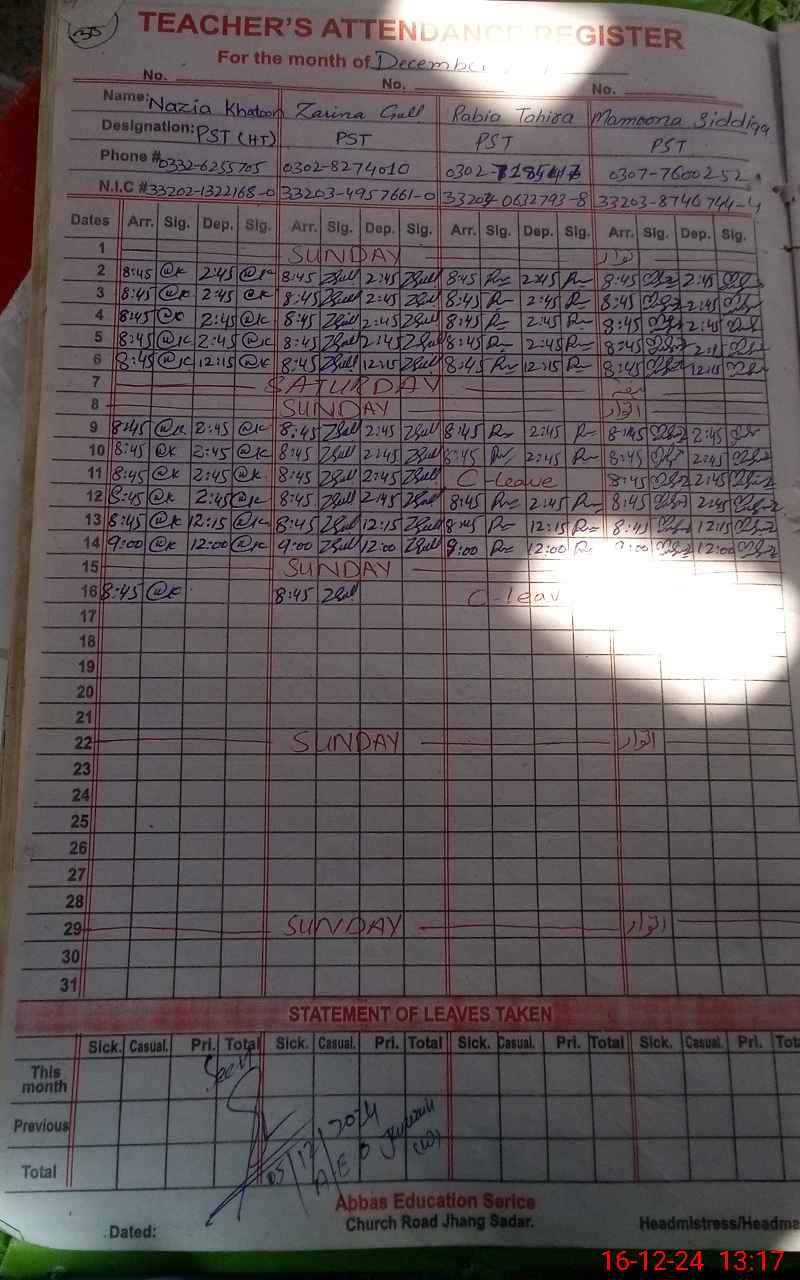 TEACHER'S ATTENDANCE REGISTER
For the month of December
No. No. No.
Name: Nazia Khatoon Zarina Gull Rabia Tahira Mamoona Siddiqa
Designation: PST (HT) PST PST PST
Phone # 0332-6255705 0302-8274010 0302- 0307-7600252
N.I.C # 33202-1322168-0 33203-4957661-0 33203-0632793-8 33203-8746744-4
Dates Arr. Sig. Dep. Sig. Arr. Sig. Dep. Sig. Arr. Sig. Dep. Sig. Arr. Sig. Dep. Sig.
1 SUNDAY اتوار
2 8:45 @K 2:45 @K 8:45 ZGull 2:45 ZGull 8:45 2:45 8:45 2:45
3 8:45 @K 2:45 @K 8:45 ZGull 2:45 ZGull 8:45 2:45 8:45 2:45
4 8:45 @K 2:45 @K 8:45 ZGull 2:45 ZGull 8:45 2:45 8:45 2:45
5 8:45 @K 2:45 @K 8:45 ZGull 2:45 ZGull 8:45 2:45 8:45
6 8:45 @K 12:15 @K 8:45 ZGull 12:15 ZGull 8:45 12:15 8:45 12:15
7 SATURDAY ہفتہ
8 SUNDAY اتوار
9 8:45 @K 2:45 @K 8:45 ZGull 2:45 ZGull 8:45 2:45 8:45 2:45
10 8:45 @K 2:45 @K 8:45 ZGull 2:45 ZGull 8:45 2:45 8:45 2:45
11 8:45 @K 2:45 @K 8:45 ZGull 2:45 ZGull C-leave 8:45 2:45
12 8:45 @K 2:45 @K 8:45 ZGull 2:45 ZGull 8:45 2:45 8:45 2:45
13 8:45 @K 12:15 @K 8:45 ZGull 12:15 ZGull 8:45 12:15 8:45 12:15
14 9:00 @K 12:00 @K 9:00 ZGull 12:00 ZGull 9:00 12:00 9:00 12:00
15 SUNDAY
16 8:45 @K 8:45 ZGull C-leav
17
18
19
20
21
22 SUNDAY اتوار
23
24
25
26
27
28
29 SUNDAY اتوار
30
31
STATEMENT OF LEAVES TAKEN
Sick. Casual. Pri. Total Sick. Casual. Pri. Total Sick. Casual. Pri. Total Sick. Casual. Pri. Tot
This month
Seen
Previous
05/12/2024
Total
A E O
(W)
Abbas Education Serice
Church Road Jhang Sadar.
Dated: Headmistress/Headma
16-12-24 13:17